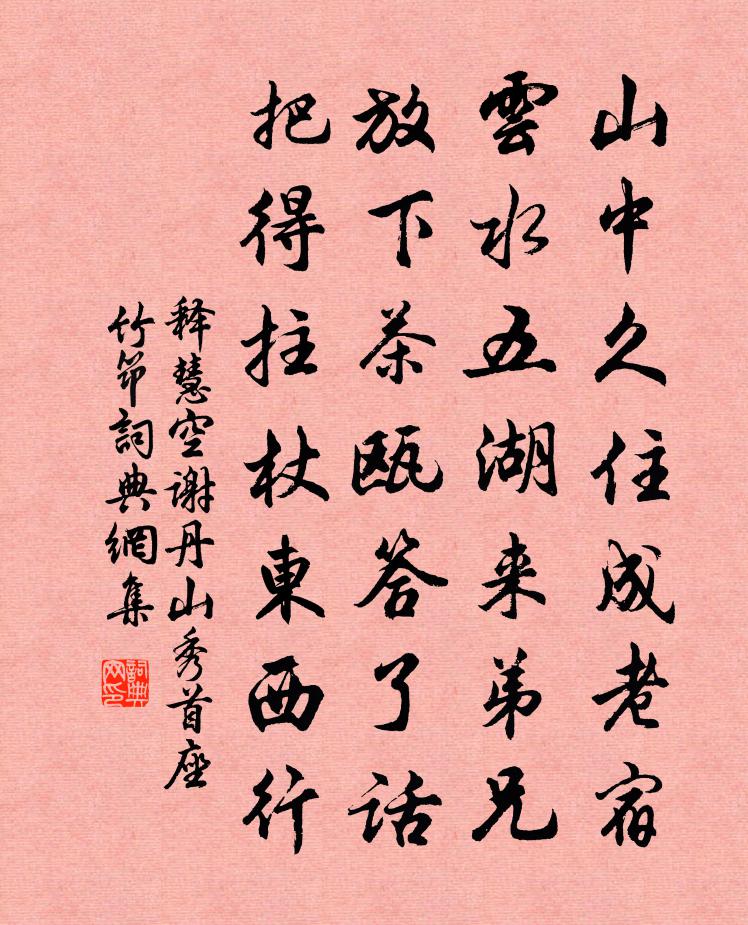 山中久住成老宿
雲水五湖来弟兄
放下茶瓯答了话
把得拄杖東西行
释慧空谢丹山秀首座
竹节詞典網集
詞典网印